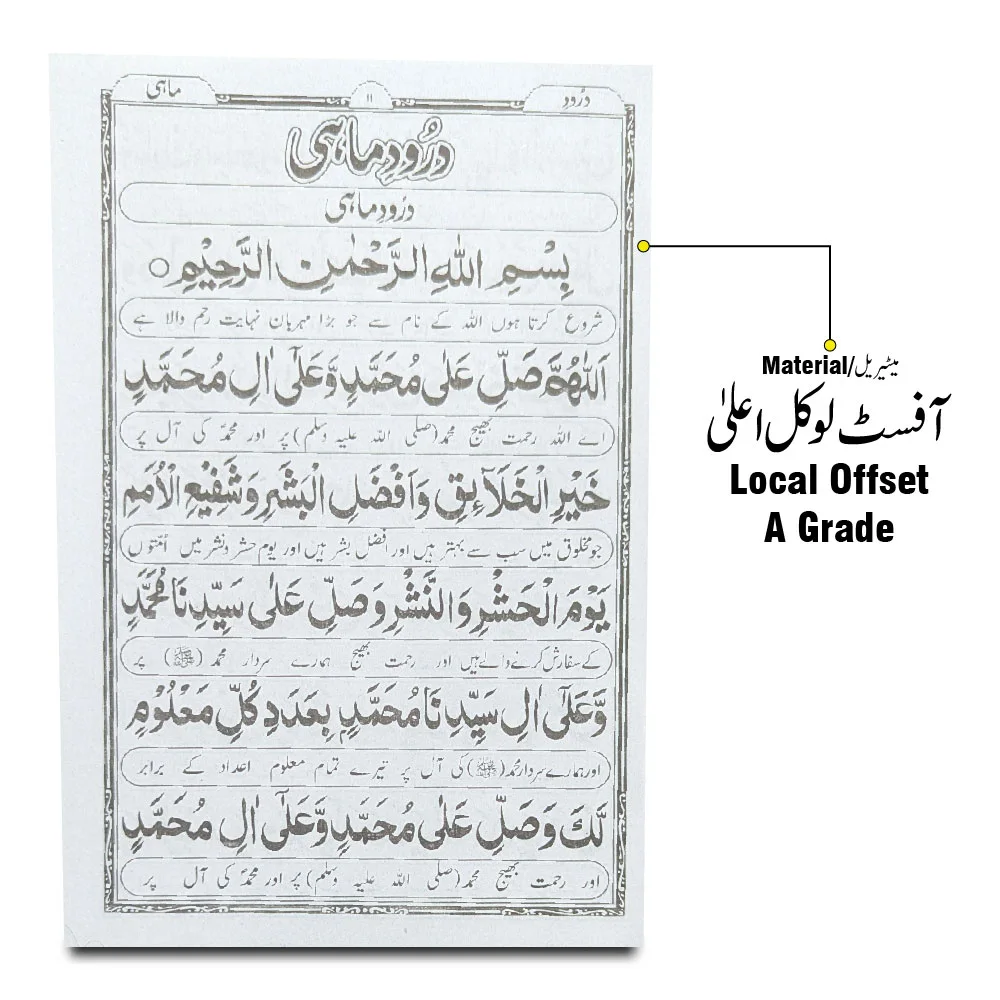 درُود
۱۱
ماہی
درُودِ ماہی
درُودِ ماہی
بِسْمِ اللهِ الرَّحْمٰنِ الرَّحِيْمِ ○
شروع کرتا ہوں اللہ کے نام سے جو بڑا مہربان نہایت رحم والا ہے
اَللّٰهُمَّ صَلِّ عَلٰى مُحَمَّدٍ وَّعَلٰٓى اٰلِ مُحَمَّدٍ
اے اللہ رحمت بھیج محمد(صلی اللہ علیہ وسلم) پر اور محمدؐ کی آل پر
خَيْرِ الْخَلَآئِقِ وَاَفْضَلِ الْبَشَرِ وَشَفِيْعِ الْاُمَمِ
جو مخلوق میں سب سے بہتر ہیں اور افضل بشر ہیں اور یوم حشر و نشر میں اُمتوں
يَوْمَ الْحَشْرِ وَالنَّشْرِ وَصَلِّ عَلٰى سَيِّدِنَا مُحَمَّدٍ
کے سفارش کرنے والے ہیں اور رحمت بھیج ہمارے سردار محمد (ﷺ) پر
وَّعَلٰٓى اٰلِ سَيِّدِنَا مُحَمَّدٍ بِعَدَدِ كُلِّ مَعْلُوْمٍ
اور ہمارے سردار محمد(ﷺ) کی آل پر تیرے تمام معلوم اعداد کے برابر
لَّكَ وَصَلِّ عَلٰى مُحَمَّدٍ وَّعَلٰٓى اٰلِ مُحَمَّدٍ
اور رحمت بھیج محمد(صلی اللہ علیہ وسلم) پر اور محمدؐ کی آل پر
Material/میٹیریل
آفسٹ لوکل اعلیٰ
Local Offset
A Grade